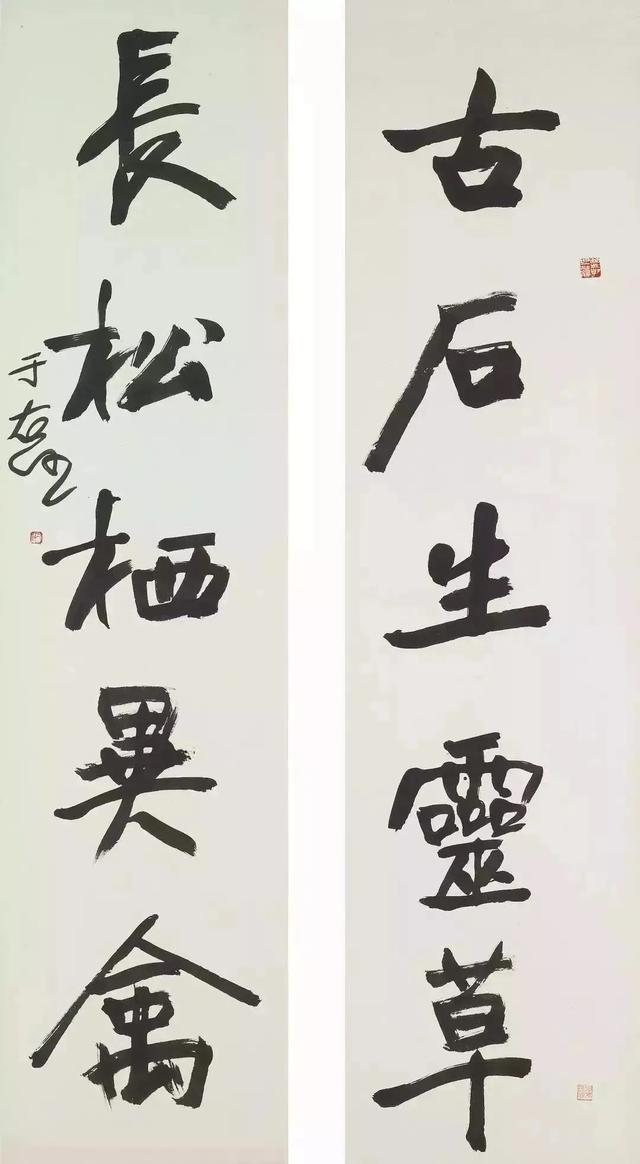 古石生靈草
長松栖異禽
于右任